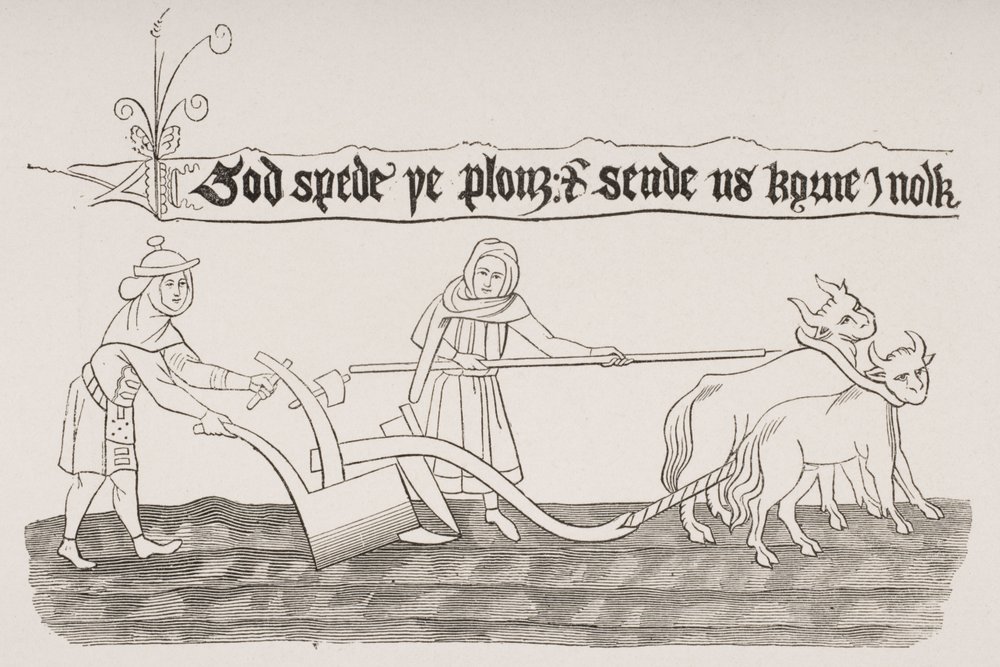 God spede ye plouȝ: & sende us korne Inolk